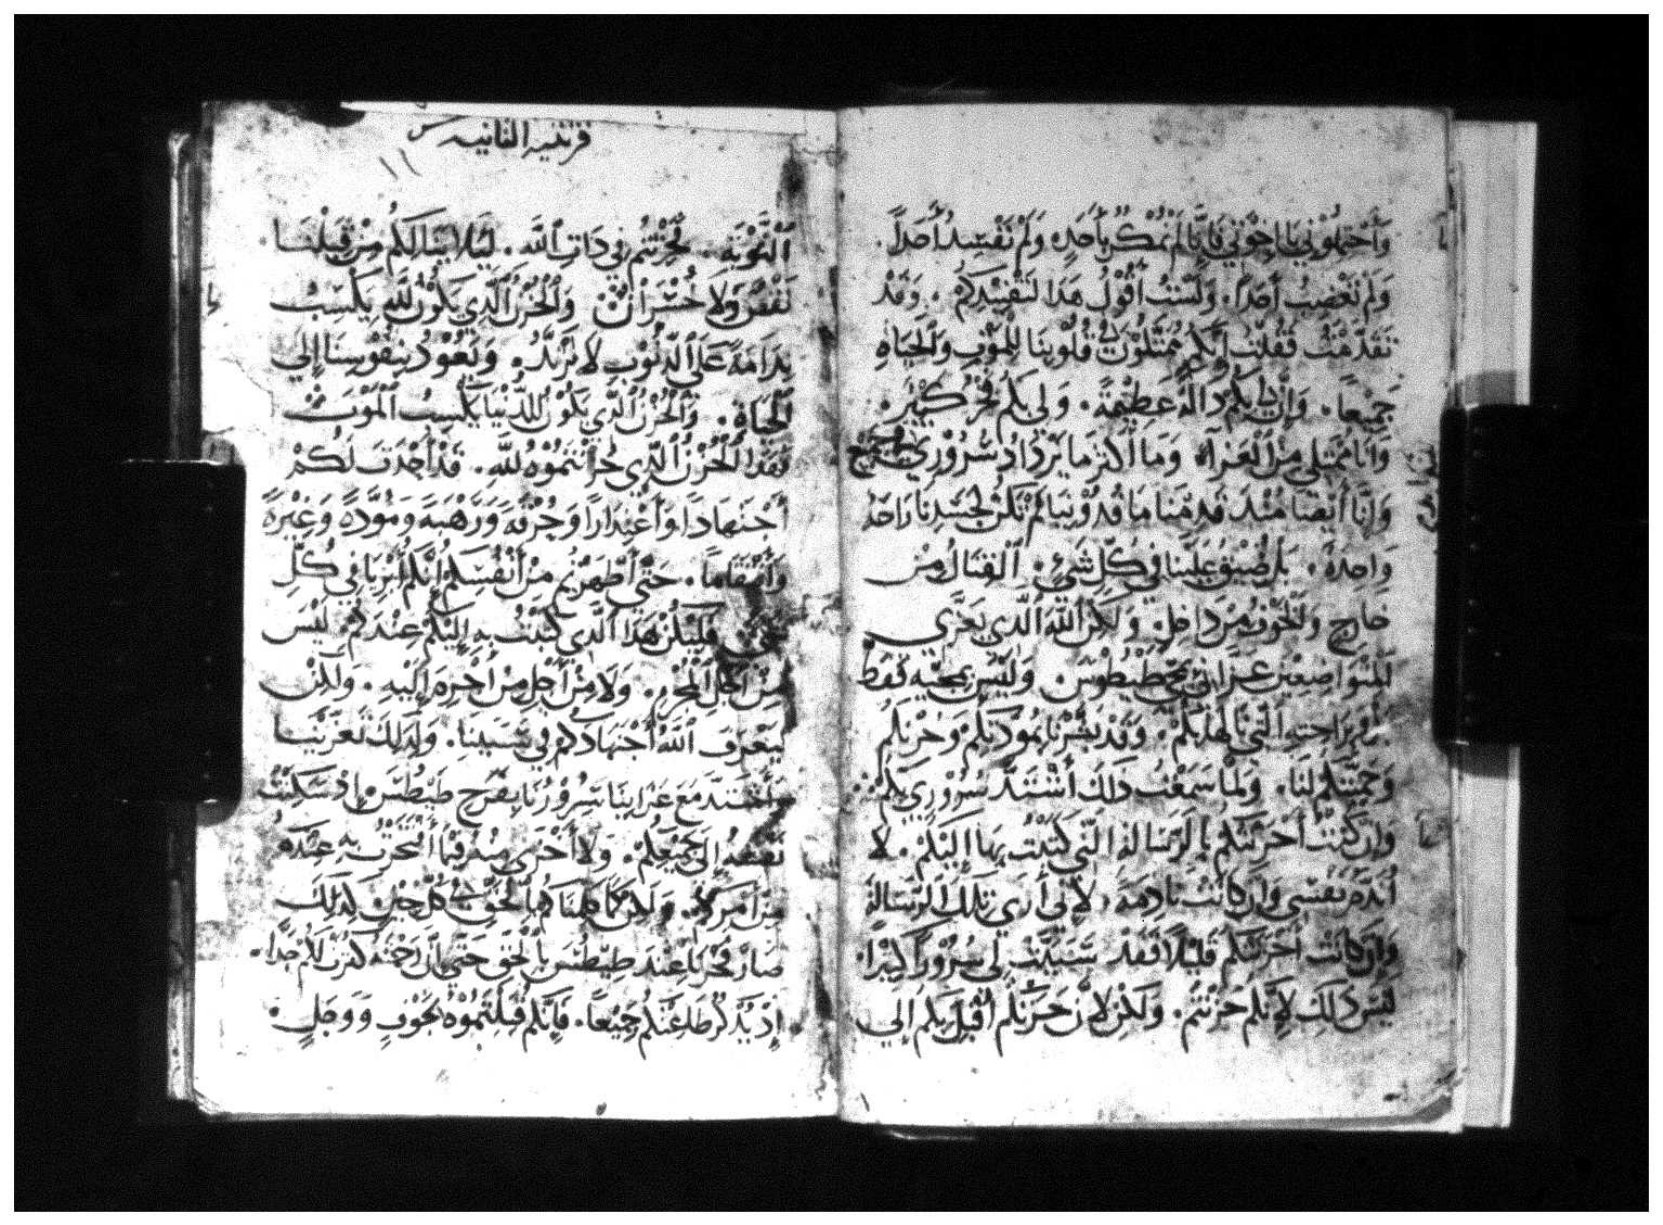 وَأَحتَمِلُونِي يَا إِخْوَتِي فَإِنَّا لَمْ نَمْكُرْ بِأَحَدٍ وَلَمْ نُفْسِدْ أَحَدًا.
وَلَمْ نَغْصِبْ أَحَدًا. وَلَسْتُ أَقُولُ هَذَا لِتَفْنِيدِكُمْ. وَقَدْ
تَقَدَّمْتُ فَقُلْتُ أَنَّكُمْ مُمَثَّلُونَ فِي قُلُوبِنَا لِلْمَوْتِ وَالْحَيَاةِ
جَمِيعًا. وَإِنَّ لِي بِكُمْ دَالَّةً عَظِيْمَةً. وَلِي بِكُمْ فَخْرٌ كَبِيْرٌ.
وَأَنَا مُمْتَلِي مِنَ الْعَزَاءِ وَمَا أَكْثَرَ مَا يَزْدَادُ سُرُوْرِي
وَإِنَّا أَيْضًا مُنْذُ قَدِمْنَا مَاقِدُوْنِيَا لَمْ تَكُنْ لِجَسَدِنَا رَاحَةٌ
وَاحِدَةٌ. بَلْ ضُيِّقَ عَلَيْنَا فِي كُلِّ شَيْءٍ. اَلْقِتَالُ مِنْ
خَارِجٍ وَالْخَوْفُ مِنْ دَاخِلٍ. وَلَكِنَّ اللَّهَ الَّذِي يُعَزِّي
الْمُتَوَاضِعِيْنَ عَزَّانَا بِمَجِي طِيْطُوْسَ. وَلَيْسَ بِمَجِيِّهِ فَقَطْ
بِرَاحَتِهِ الَّتِي نَالَهَا بِكُمْ. وَقَدْ بَشَّرَنَا بِمَوَدَّتِكُمْ وَحُزْنِكُمْ
وَحَمِيَّتِكُمْ لَنَا. وَلَمَّا سَمِعْتُ ذَلِكَ أَشْتَدَّ سُرُوْرِي بِكُمْ
وَإِنْ كُنْتُ أَحْزَنْتُكُمْ بِالرِّسَالَةِ الَّتِي كَتَبْتُ بِهَا إِلَيْكُمْ. لَا
تَنْدَمُ نَفْسِي وَإِنْ كَانَتْ نَادِمَةً، لِأَنِّي أَرَى تِلْكَ الرِّسَالَةَ
وَإِنْ كَانَتْ أَحْزَنَتْكُمْ قَلِيْلًا فَقَدْ سَبَّبَتْ لِي سُرُوْرًا كَبِيرًا.
لَيْسَ ذَلِكَ لِأَنَّكُمْ حَزِنْتُمْ. وَلَكِنْ لِأَنَّ حُزْنَكُمْ أَقْبَلَ بِكُمْ إِلَى
قرنتيه الثانيه
١١
اَلتَّوْبَةِ حُزِنْتُمْ فِي ذَاتِ اللَّهِ. لِيَلَا يَنَالَكُمْ مِنْ قِبَلِنَا
نَقْصٌ وَلَا خُسْرَانٌ وَالْحُزْنُ الَّذِي يَكُوْنُ لِلَّهِ يَكْسِبُ
نَدَامَةً عَلَى الذُّنُوْبِ لَا تُرَدُّ. وَيَعُوْدُ بِنُفُوْسِنَا إِلَى
الْحَيَاةِ. وَالْحُزْنُ الَّذِي يَكُوْنُ لِلدُّنْيَا يَكْسِبُ الْمَوْتَ
فَهَذَا الْحُزْنُ الَّذِي حَزِنْتُمُوْهُ لِلَّهِ. قَدْ أَحْدَثَ لَكُمْ
أَجْتِهَادًا وَأَعْتِذَارًا وَحُرْقَةً وَرَهْبَةً وَمَوَدَّةً وَغِيْرَةً
وَأَنْتِقَامًا. حَتَّى أَظْهَرْتُمْ مِنْ أَنْفُسِكُمْ أَنَّكُمْ أَبْرِيَا فِي كُلِّ
فَلْيَكُنْ هَذَا الَّذِي كَتَبْتُ بِهِ إِلَيْكُمْ عِنْدَكُمْ لَيْسَ
مِنْ أَجْلِ الْمُجْرِمِ. وَلَا مِنْ أَجْلِ مَنْ أُجْرِمَ إِلَيْهِ. وَلَكِنْ
لِيَعْرِفَ اللَّهُ أَجْتِهَادَكُمْ فِي سَبَبِنَا. وَلِذَلِكَ تَعَزَّيْنَا
وَأَشْتَدَّ مَعَ عَزَائِنَا سُرُوْرُنَا بِفَرَحِ طِيْطُسَ إِذْ سَكَنَتْ
نَفْسُهُ إِلَى جَمِيْعِكُمْ. وَلَا أَخْزَى مِنْهُ فِيْمَا أَفْتَخَرْتُ بِهِ عِنْدَهُ
مِنْ أَمْرِكُمْ. وَلَكِنْ كَمَا كَلَّمْنَاكُمْ بِالْحَقِّ فِي كُلِّ حِيْنٍ كَذَلِكَ
صَارَ فَخْرُنَا عِنْدَ طِيْطُسَ بِالْحَقِّ حَتَّى أَنَّ رَحْمَتَهُ كَثُرَتْ لَكُمْ جِدًّا.
إِذْ يَذْكُرُ طَاعَتَكُمْ جَمِيْعًا. فَإِنَّكُمْ قَبِلْتُمُوْهُ بِخَوْفٍ وَوَجَلٍ.